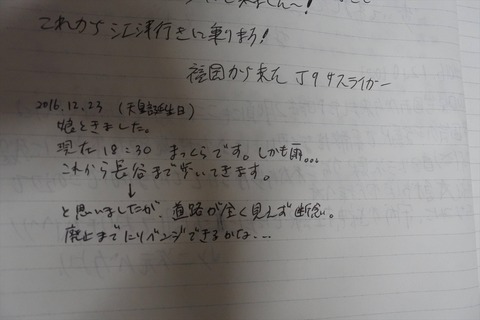 これから江津行きに乗ります!
福岡から来た J99スライガー
2016.12.23 (天皇誕生日)
娘ときました。
現在18:30 まっくらです。しかも雨...
これから長谷まで歩いてきます。
↓
と思いましたが、道路が全く見えず断念。
廃止までにリベンジできるかな...